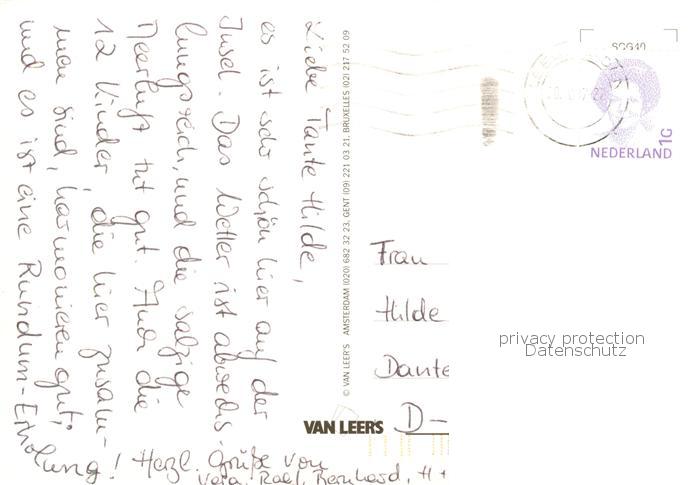 Liebe Tante Hilde,
es ist sehr schön hier auf der
Insel. Das Wetter ist abwechs-
lungsreich, und die salzige
Meerluft tut gut. Auch die
12 Kinder, die hier zusam-
men sind, harmonieren gut;
und es ist eine Rundum-Erholung!
Herzl. Grüße von
Vera, Bernhard, H
© VAN LEER'S AMSTERDAM (020) 682 32 23, GENT (09) 221 03 21, BRUXELLES (02) 217 52 09
VAN LEER'S
NEDERLAND
1G
Frau
Hilde
Dante
D-
privacy protection
Datenschutz